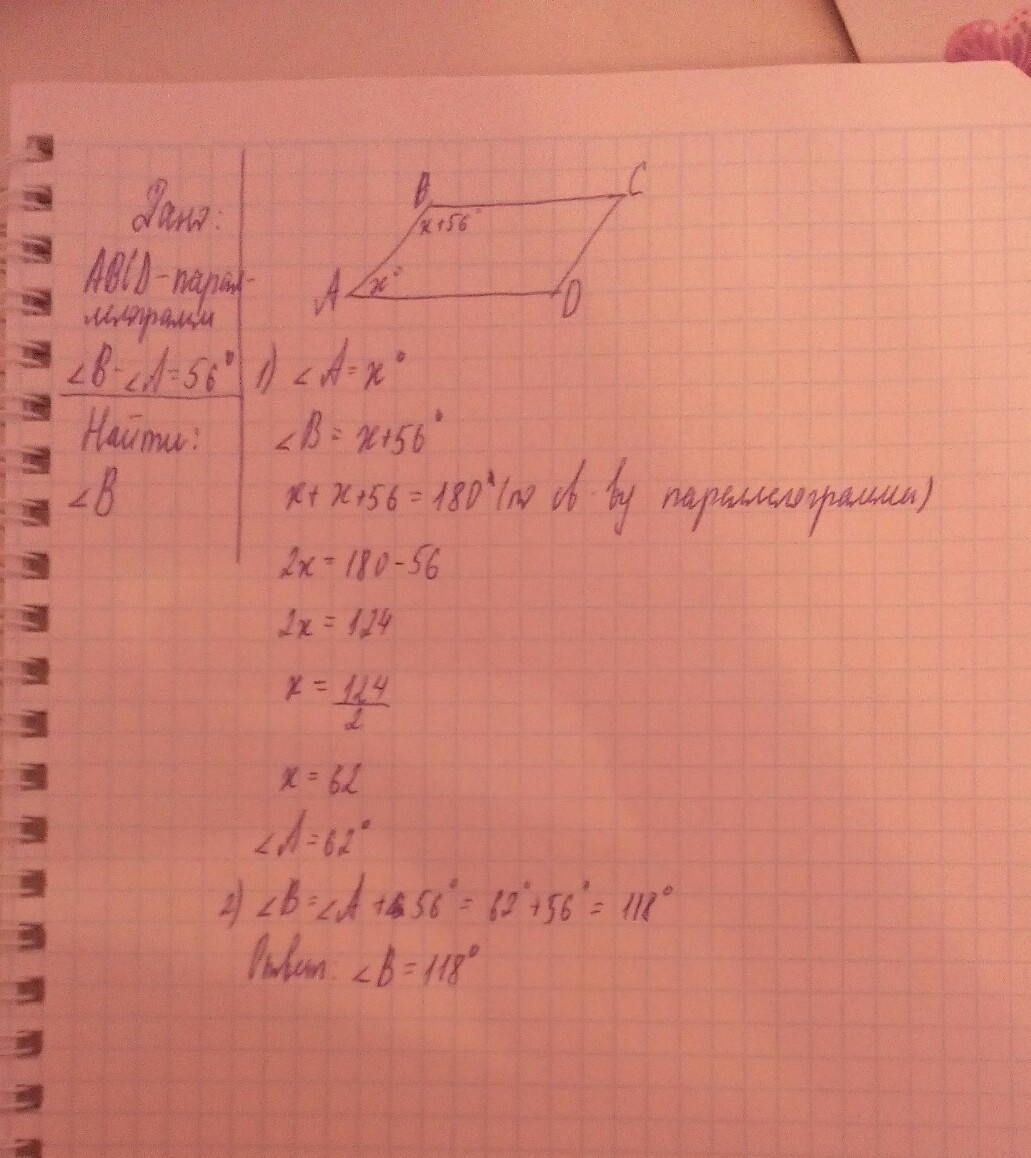 Дано:
ABCD-парал-
лелограмм
∠B-∠A=56°
Найти:
∠B
B
C
x+56°
A
x°
D
1) ∠A=x°
∠B=x+56°
x+x+56=180°(по св-ву параллелограмма)
2x=180-56
2x=124
x=124/2
x=62
∠A=62°
2) ∠B=∠A+56°=62°+56°=118°
Ответ: ∠B=118°